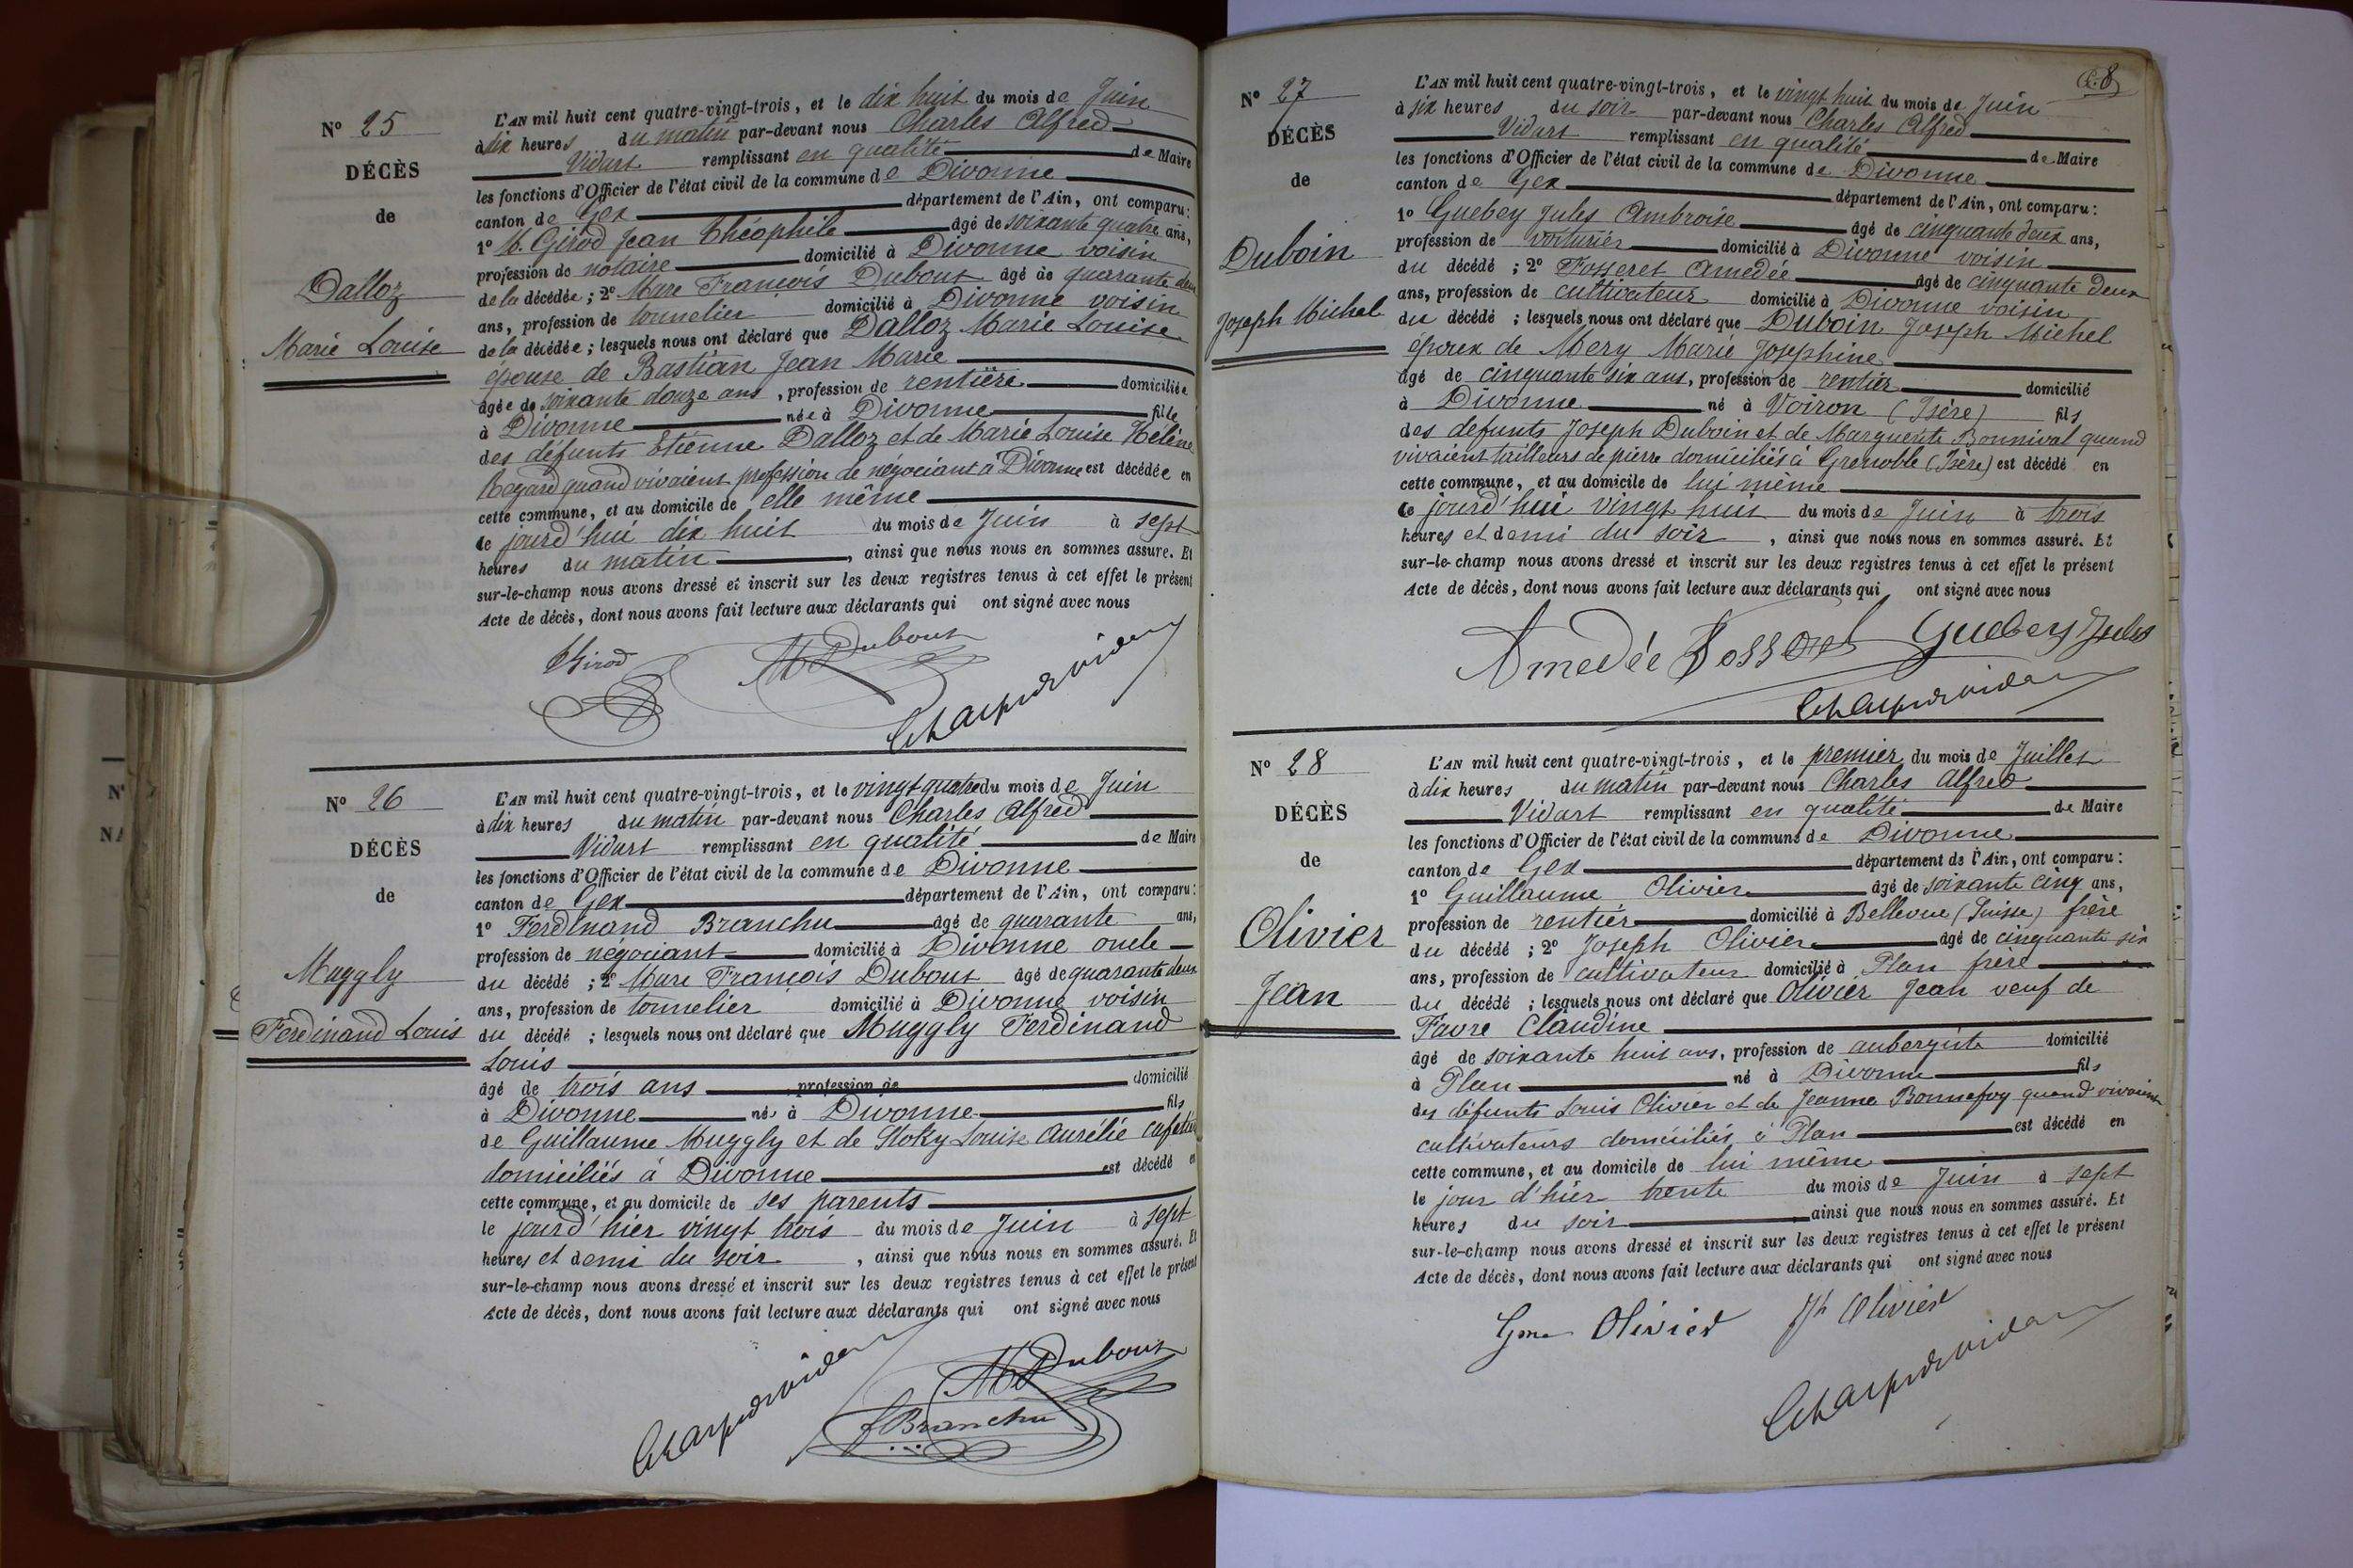 N° 25
DÉCÈS
de
Dalloz
Marie Louise
L'AN mil huit cent quatre-vingt-trois, et le dix huit du mois de Juin
à dix heures du matin par-devant nous Charles Alfred
Vidart remplissant en qualité de Maire
les fonctions d'Officier de l'état civil de la commune de Divonne
canton de Gex département de l'Ain, ont comparu :
1° M. Girod Jean Théophile âgé de soixante quatre ans,
profession de notaire domicilié à Divonne voisin
de la décédée ; 2° Marc François Dubout âgé de quarante deux
ans, profession de tonnelier domicilié à Divonne voisin
de la décédée ; lesquels nous ont déclaré que Dalloz Marie Louise
épouse de Bastian Jean Marie
âgée de soixante douze ans, profession de rentière domiciliée
à Divonne née à Divonne fille
des défunts Etienne Dalloz et de Marie Louise Hélène
quand vivaient profession de négociant à Divonne est décédée en
cette commune, et au domicile de elle même
le jourd'hui dix huit du mois de Juin à sept
heures du matin, ainsi que nous nous en sommes assuré. Et
sur-le-champ nous avons dressé et inscrit sur les deux registres tenus à cet effet le présent
Acte de décès, dont nous avons fait lecture aux déclarants qui ont signé avec nous
Girod MF Dubout
N° 26
DÉCÈS
de
Muggly
Ferdinand Louis
L'AN mil huit cent quatre-vingt-trois, et le vingt quatre du mois de Juin
à dix heures du matin par-devant nous Charles Alfred
Vidart remplissant en qualité de Maire
les fonctions d'Officier de l'état civil de la commune de Divonne
canton de Gex département de l'Ain, ont comparu :
1° Ferdinand Branchu âgé de quarante ans,
profession de négociant domicilié à Divonne oncle
du décédé ; 2° Marc François Dubout âgé de quarante deux
ans, profession de tonnelier domicilié à Divonne voisin
du décédé ; lesquels nous ont déclaré que Muggly Ferdinand
Louis
âgé de trois ans profession de domicilié
à Divonne né à Divonne fils
de Guillaume Muggly et de Stoky Louise Aurélie
domiciliés à Divonne est décédé en
cette commune, et au domicile de ses parents
le jourd'hier vingt trois du mois de Juin à sept
heures et demi du soir, ainsi que nous nous en sommes assuré. Et
sur-le-champ nous avons dressé et inscrit sur les deux registres tenus à cet effet le présent
Acte de décès, dont nous avons fait lecture aux déclarants qui ont signé avec nous
MF Dubout
F Branchu
N° 27
DÉCÈS
de
Duboin
Joseph Michel
L'AN mil huit cent quatre-vingt-trois, et le vingt huit du mois de Juin
à six heures du soir par-devant nous Charles Alfred
Vidart remplissant en qualité de Maire
les fonctions d'Officier de l'état civil de la commune de Divonne
canton de Gex département de l'Ain, ont comparu :
1° Guebey Jules Ambroise âgé de cinquante deux ans,
profession de voiturier domicilié à Divonne voisin
du décédé ; 2° Fosseret Amedée âgé de cinquante deux
ans, profession de cultivateur domicilié à Divonne voisin
du décédé ; lesquels nous ont déclaré que Duboin Joseph Michel
époux de Mery Marie Josephine
âgé de cinquante six ans, profession de rentier domicilié
à Divonne né à Voiron (Isère) fils
des défunts Joseph Duboin et de Marguerite Bonnival quand
vivaient tailleurs de pierre domiciliés à Grenoble (Isère) est décédé en
cette commune, et au domicile de lui même
le jourd'hui vingt huit du mois de Juin à trois
heures et demi du soir, ainsi que nous nous en sommes assuré. Et
sur-le-champ nous avons dressé et inscrit sur les deux registres tenus à cet effet le présent
Acte de décès, dont nous avons fait lecture aux déclarants qui ont signé avec nous
Amedée Fosseret Guebey Jules
N° 28
DÉCÈS
de
Olivier
Jean
L'AN mil huit cent quatre-vingt-trois, et le premier du mois de Juillet
à dix heures du matin par-devant nous Charles Alfred
Vidart remplissant en qualité de Maire
les fonctions d'Officier de l'état civil de la commune de Divonne
canton de Gex département de l'Ain, ont comparu :
1° Guillaume Olivier âgé de soixante cinq ans,
profession de rentier domicilié à Bellevue (Suisse) frère
du décédé ; 2° Joseph Olivier âgé de cinquante six
ans, profession de cultivateur domicilié à Plan frère
du décédé ; lesquels nous ont déclaré que Olivier Jean veuf de
Favre Claudine
âgé de soixante huit ans, profession de aubergiste domicilié
à Plan né à Divonne fils
des défunts Louis Olivier et de Jeanne Bonnefoy quand vivaient
cultivateurs domiciliés à Plan est décédé en
cette commune, et au domicile de lui même
le jour d'hier trente du mois de Juin à sept
heures du soir ainsi que nous nous en sommes assuré. Et
sur-le-champ nous avons dressé et inscrit sur les deux registres tenus à cet effet le présent
Acte de décès, dont nous avons fait lecture aux déclarants qui ont signé avec nous
Gme Olivier Jh Olivier